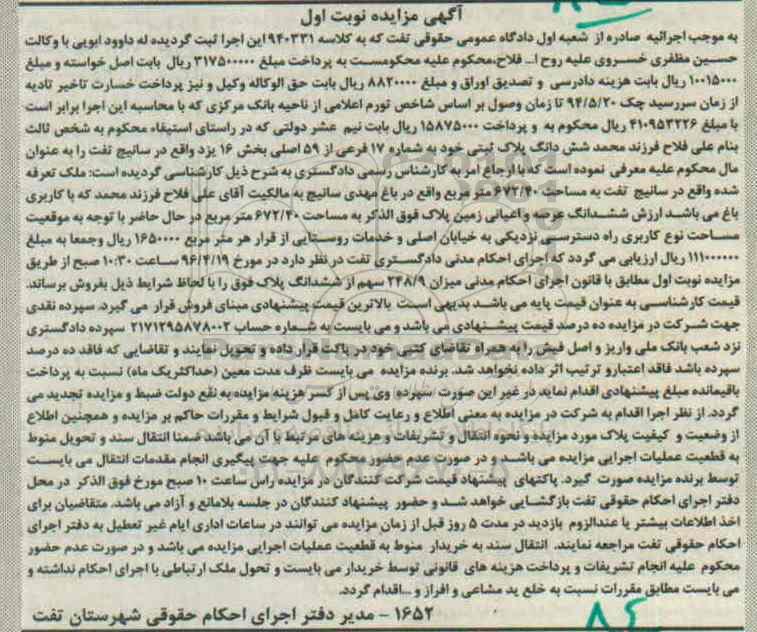 آگهی مزایده نوبت اول
به موجب اجرائیه صادره از شعبه اول دادگاه عمومی حقوقی تفت که به کلاسه ۹۴۰۳۳۱ این اجرا ثبت گردیده له داوود ابویی با وکالت
حسین مظفری خسروی علیه روح ا... فلاح،محکوم علیه محکومست به پرداخت مبلغ ۳۱۷۵۰۰۰۰۰ ریال بابت اصل خواسته و مبلغ
۱۰۰۱۵۰۰۰ ریال بابت هزینه دادرسی و تصدیق اوراق و مبلغ ۸۸۲۰۰۰۰ ریال بابت حق الوکاله وکیل و نیز پرداخت خسارت تاخیر تادیه
از زمان سررسید چک ۹۴/۵/۲۰ تا زمان وصول بر اساس شاخص تورم اعلامی از ناحیه بانک مرکزی که با محاسبه این اجرا برابر است
با مبلغ ۴۱۰۹۵۳۲۲۶ ریال محکوم به و پرداخت ۱۵۸۷۵۰۰۰ ریال بابت نیم عشر دولتی که در راستای استیفاء محکوم به شخص ثالث
بنام علی فلاح فرزند محمد شش دانگ پلاک ثبتی خود به شماره ۱۷ فرعی از ۵۹ اصلی بخش ۱۶ یزد واقع در سانیچ تفت را به عنوان
مال محکوم علیه معرفی نموده است که با ارجاع امر به کارشناس رسمی دادگستری به شرح ذیل کارشناسی گردیده است: ملک تعرفه
شده واقع در سانیچ تفت به مساحت ۶۷۲/۴۰ متر مربع واقع در باغ مهدی سانیچ به مالکیت آقای علی فلاح فرزند محمد که با کاربری
باغ می باشد ارزش ششدانگ عرصه و اعیانی زمین پلاک فوق الذکر به مساحت ۶۷۲/۴۰ متر مربع در حال حاضر با توجه به موقعیت
مساحت نوع کاربری راه دسترسی نزدیکی به خیابان اصلی و خدمات روستایی از قرار هر متر مربع ۱۶۵۰۰۰۰ ریال وجمعا به مبلغ
۱۱۱۰۰۰۰۰۰۰ ریال ارزیابی می گردد که اجرای احکام مدنی دادگستری تفت در نظر دارد در مورخ ۹۶/۴/۱۹ ساعت ۱۰:۳۰ صبح از طریق
مزایده نوبت اول مطابق با قانون اجرای احکام مدنی میزان ۲۴۸/۹ سهم از ششدانگ پلاک فوق را با لحاظ شرایط ذیل بفروش برساند.
قیمت کارشناسی به عنوان قیمت پایه می باشد بدیهی است بالاترین قیمت پیشنهادی مبنای فروش قرار می گیرد. سپرده نقدی
جهت شرکت در مزایده ده درصد قیمت پیشنهادی می باشد و می بایست به شماره حساب ۲۱۷۱۲۹۵۸۷۸۰۰۲ سپرده دادگستری
نزد شعب بانک ملی واریز و اصل فیش را به همراه تقاضای کتبی خود در پاکت قرار داده و تحویل نمایند و تقاضایی که فاقد ده درصد
سپرده باشد فاقد اعتبارو ترتیب اثر داده نخواهد شد. برنده مزایده می بایست ظرف مدت معین (حداکثریک ماه) نسبت به پرداخت
باقیمانده مبلغ پیشنهادی اقدام نماید در غیر این صورت سپرده وی پس از کسر هزینه مزایده به نفع دولت ضبط و مزایده تجدید می
گردد. از نظر اجرا اقدام به شرکت در مزایده به معنی اطلاع و رعایت کامل و قبول شرایط و مقررات حاکم بر مزایده و همچنین اطلاع
از وضعیت و کیفیت پلاک مورد مزایده و نحوه انتقال و تشریفات و هزینه های مرتبط با آن می باشد ضمنا انتقال سند و تحویل منوط
به قطعیت عملیات اجرایی مزایده می باشد و در صورت عدم حضور محکوم علیه جهت پیگیری انجام مقدمات انتقال می بایست
توسط برنده مزایده صورت گیرد. پاکتهای پیشنهاد قیمت شرکت کنندگان در مزایده راس ساعت ۱۰ صبح مورخ فوق الذکر در محل
دفتر اجرای احکام حقوقی تفت بازگشایی خواهد شد و حضور پیشنهاد کنندگان در جلسه بلامانع و آزاد می باشد. متقاضیان برای
اخذ اطلاعات بیشتر یا عندالزوم بازدید در مدت ۵ روز قبل از زمان مزایده می توانند در ساعات اداری ایام غیر تعطیل به دفتر اجرای
احکام حقوقی تفت مراجعه نمایند. انتقال سند به خریدار منوط به قطعیت عملیات اجرایی مزایده می باشد و در صورت عدم حضور
محکوم علیه انجام تشریفات و پرداخت هزینه های قانونی توسط خریدار می بایست و تحول ملک ارتباطی با اجرای احکام نداشته و
می بایست مطابق مقررات نسبت به خلع ید مشاعی و افراز و ...اقدام گردد.
۱۶۵۲ - مدیر دفتر اجرای احکام حقوقی شهرستان تفت